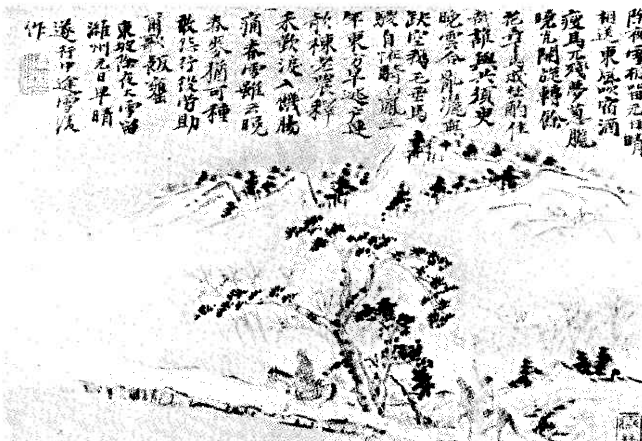 除夜雪相留元日晴
相送東風吹宿酒
瘦馬兀殘夢蔥曨
曉光開旋轉餘
花弄下馬成野酌佳
哉誰與共須臾
晚雲合亂灑無
缺空鵝毛垂馬
騣自怪騎白鳳三
年東方旱逃戶連
欹棟老農釋
耒歎淚入饑腸
痛春雪雖云晚
春麥猶可種
敢怨行役勞助
爾歌飯甕
東坡除夜大雪留
濰州元日早晴
遂行中途雪復
作